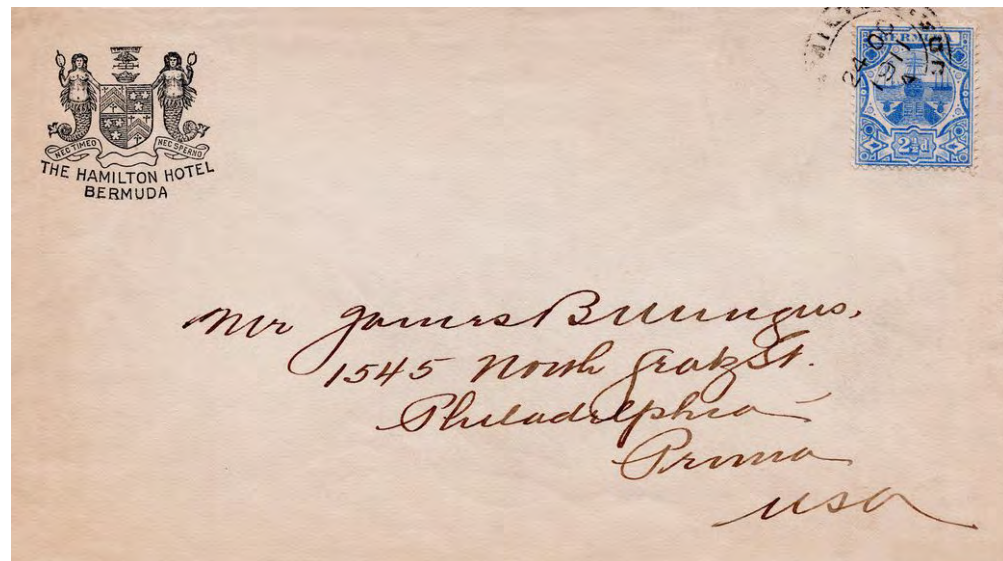 NEC TIMEO NEC SPERNO
THE HAMILTON HOTEL
BERMUDA
24 OC
1911
2½d
Mr James
1545 North Gratz St.
Philadelphia
Penna
USA